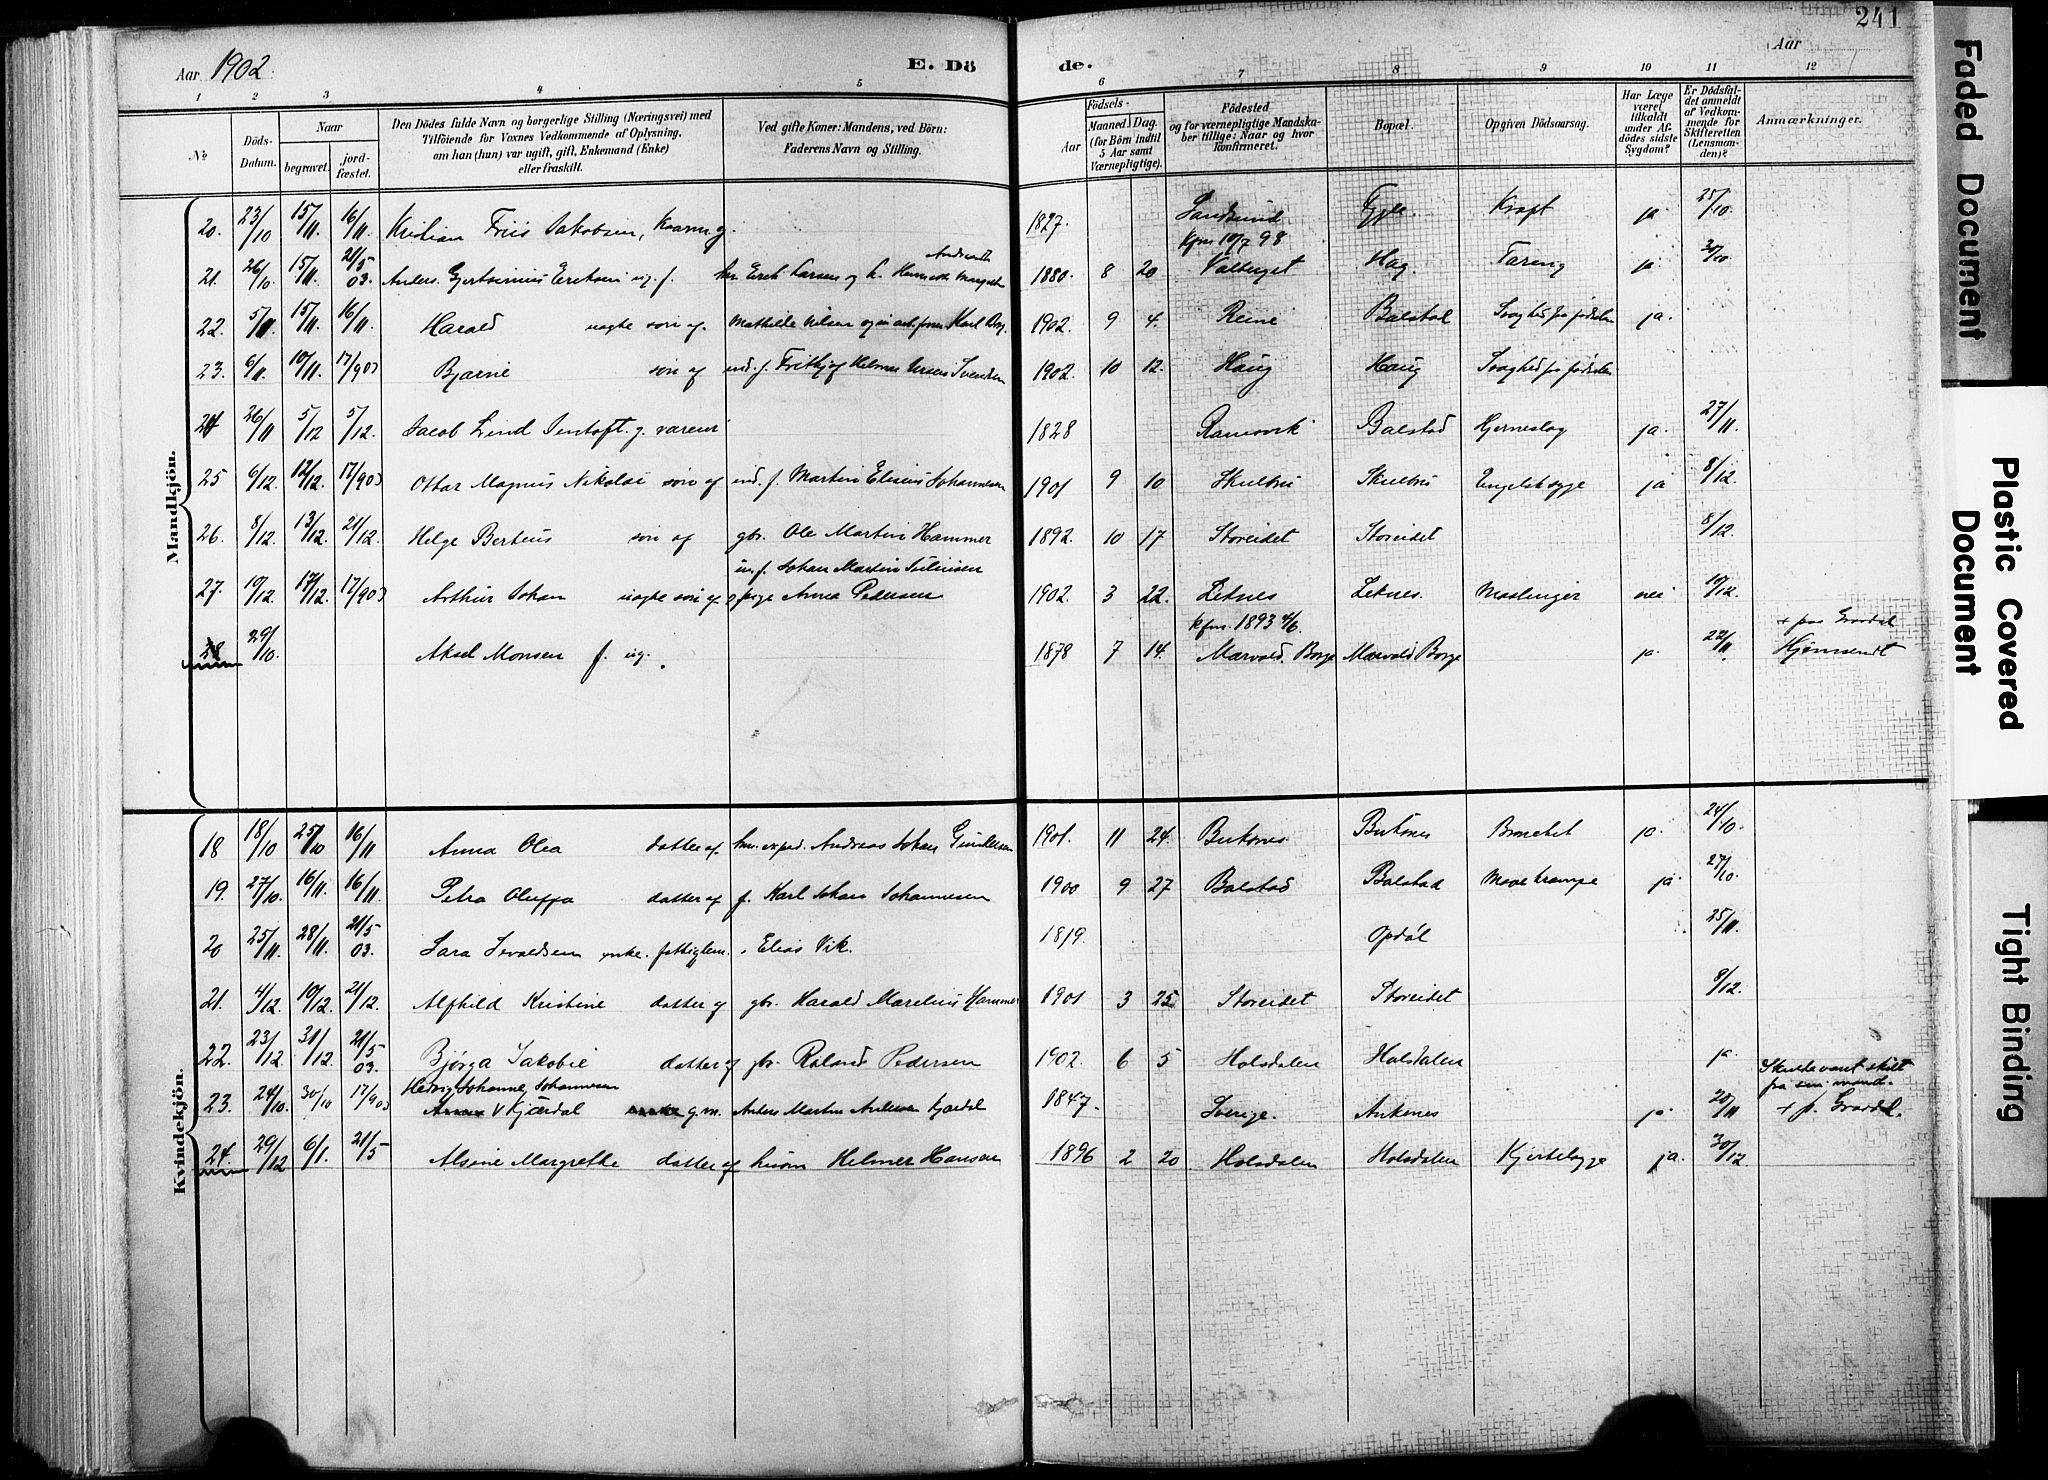 241
Aar 1902. E. Dö de. Aar
1 2 3 4 5 6 7 8 9 10 11 12
№
Döds-Datum.
Naar begravet. jordfæstet.
Den Dödes fulde Navn og borgerlige Stilling (Næringsvei) med
Tilföiende for Voxnes Vedkommende af Oplysning,
om han (hun) var ugift, gift, Enkemand (Enke)
eller fraskilt.
Ved gifte Koner: Mandens, ved Börn:
Faderens Navn og Stilling.
Födsels-
Aar
Maaned. Dag.
(for Børn indtil
5 Aar samt
Værnepligtige).
Födested
og for værnepligtige Mandska-
ber tillige: Naar og hvor
Konfirmeret.
Bopæl.
Opgiven Dödsaarsag.
Har Læge
været
tilkaldt
under Af-
dödes sidste
Sygdom?
Er Dödsfal-
det anmeldt
af Vedkom-
mende for
Skifteretten
(Lensman-
den)?
Anmærkninger.
Mandkjön.
20. 23/10 15/11. 16/11. Kristian Friis Jakobsen, g. 1827. Sandsund Kraft ja 25/10.
kfm 10/7 98
21. 26/10. 15/11. 21/5 03. Anders Eriksen ug. f. Erik Larsen og h. 1880. 8 20. Hag Tæring ja.
22. 5/11. 15/11. 16/11. Harald uægte sön af Mathilde Nilsen og Karl 1902. 9 4. Reine Balstad Svaghed fra födselen ja.
23. 6/11. 10/11. 17/903 Bjarne sön af ind. f. Fritjof Helmer Svendsen 1902. 10 12. Haug Haug Svaghed fra födselen
24 26/11 5/12 5/12. Jacob Lind Jentoft. g. 1828 Ramsvik Balstad Hjerneslag ja. 27/11.
25 6/12. 12/12. 17/903 Ottar Magnus Nikolai sön af ind. f. Martin Elisius Johannesen 1901 9 10 Skulbru Skulbru Engelsksyge ja 8/12.
26. 8/12. 13/12. 21/12. Helge Berteus sön af gbr. Ole Martin Hammer 1892. 10 17 Storeidet Storeidet 8/12.
27. 10/12. 17/12. 17/903 Arthur Johan uægte sön af Johan Martin
pige Anna Pedersen 1902. 3 22. Leknes Leknes. Meslinger nei 10/12.
kfm. 1893 4/6.
28 29/10. Aksel Monsen f. ug. 1878 7 14. Mærvold. Borge Mærvold Borge ja. 22/11. + paa Gravdal
Hjemsendt
Kvindekjön.
18 18/10 25/10 16/11 Anna Olea datter af exped. Andreas Johan 1901. 11 24. Buksnes. Buksnes ja. 24/10.
19. 27/10. 16/11. 16/11. Petra Oluffa datter af f. Karl Johan Johannesen 1900 9 27 Balstad Balstad Mavekrampe ja 27/10.
20 25/11. 28/11. 21/5 03. Sara Sevaldsen enke. fattiglem. Elias Vik. 1819. Opdöl 25/11.
21. 4/12. 10/12. 21/12. Alfhild Kristine datter af gbr. Harald Marelius Hammer 1901 3 25 Storeidet Storeidet 9/12.
22. 23/12 31/12. 21/5 03. Björga Jakobie datter af gbr. Roland Pedersen 1902. 6 5 Holsdalen Holsdalen ja.
Skulde vært skilt
fra sin mand.
23. 24/10. 30/10 17/903 Hedvig Johanne Johannesen
Kjærdal g. m. Anders Martin 1847. Sverige. Ankenes ja. 20/11 + p. Gravdal.
24. 29/12 6/1. 21/5 Alsine Margrethe datter af husm Helmer Hansen 1896 2 20 Holsdalen Holsdalen Kjertelsyge ja. 30/12.
Faded Document
Plastic Covered Document
Tight Binding